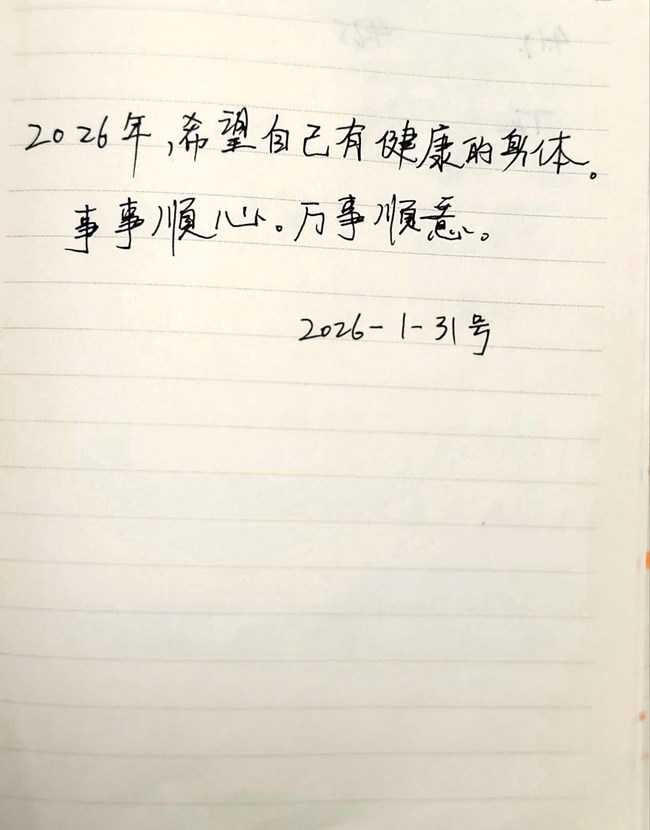 2026年,希望自己有健康的身体。
事事顺心。万事顺意。
2026-1-31号